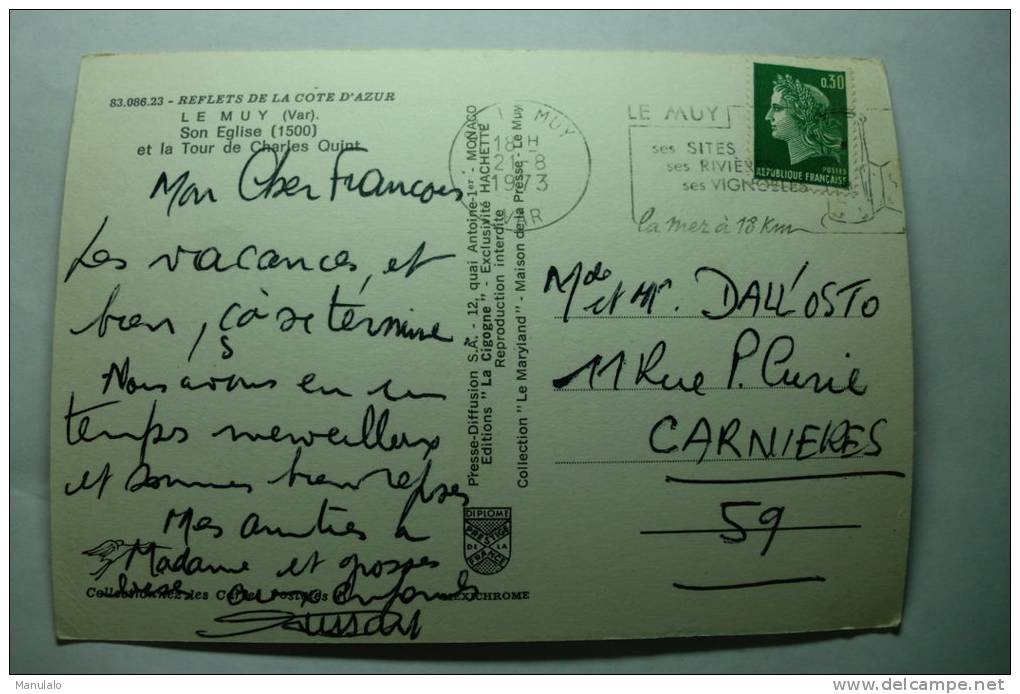 83.086.23 - REFLETS DE LA COTE D'AZUR
LE MUY (Var).
Son Eglise (1500)
et la Tour de Charles Quint
Mon Cher Francois
Les vacances, et
bien, ça se termine
Nous avons eu un
temps merveilleux
et sommes bien reposés
Mes amitiés à
Madame et grosses
bises aux enfants
Collectionnez les Cartes Postales
MEXICHROME
Presse-Diffusion S.A. - 12, quai Antoine-1er - MONACO
Editions "La Cigogne" - Exclusivité HACHETTE
Reproduction interdite
Collection "Le Maryland" - Maison de la Presse - Le Muy
DIPLOME
PRESTIGE
DE LA
FRANCE
LE MUY
18 H
21-8
1973
VAR
LE MUY
ses SITES
ses RIVIÈRES
ses VIGNOBLES
la mer à 18 Km
0,30
POSTES
REPUBLIQUE FRANÇAISE
Mde
et Mr. DALL'OSTO
11 Rue P. Curie
CARNIERES
59
Manulalo
delcampe.net